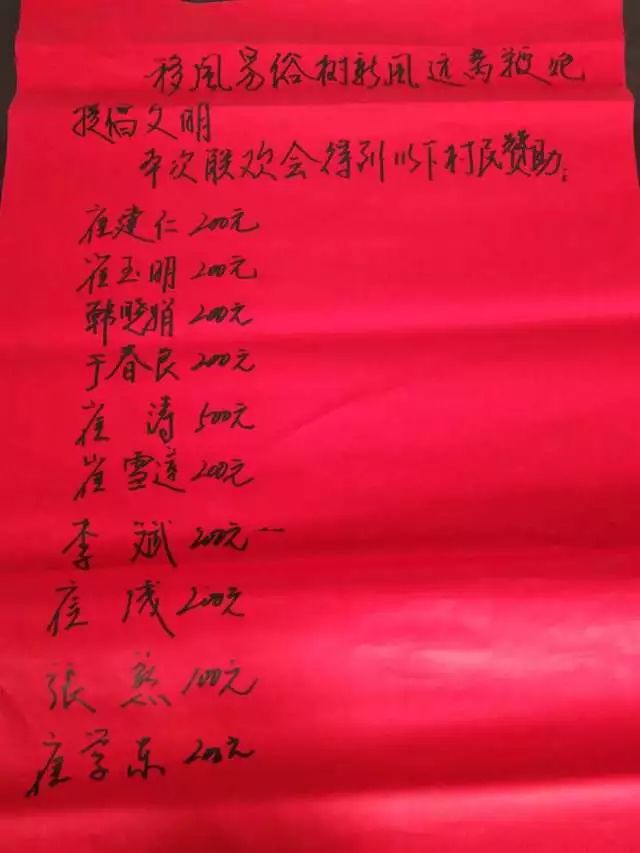 移风易俗树新风远离鞭炮
提倡文明
本次联欢会得到以下村民赞助:
崔建仁 200元
崔玉明 200元
韩晓娟 200元
于春良 200元
崔涛 500元
崔雪莲 200元
李斌 200元
崔 200元
张 100元
崔学东 200元